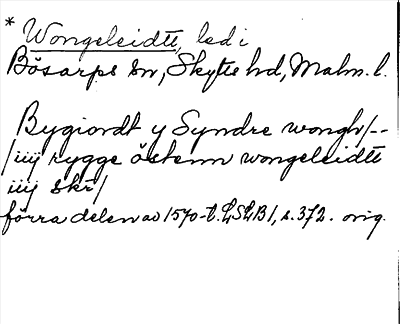 * Wongeleidtt, led i
Bösarps sn, Skytts hd, Malm. l.
Bygiordt y Syndre wongh/--
/iiij rygge östenn wongeleidtt
iiij skr/
förra delen av 1570-t. LSLB 1, s. 372. orig.